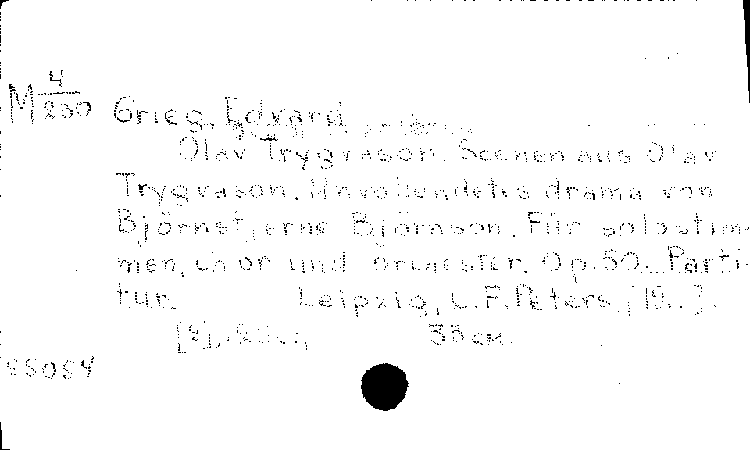 M 4/230 Grieg, Edvard
Olav Trygvason. Scenen aus Olav
Trygvason. Unvollendetes drama von
Björnstjerne Björnson. Für solostim-
men, chor und orchester. Op.50. Parti-
tur. Leipzig, C.F.Peters, [19..].
33 см.